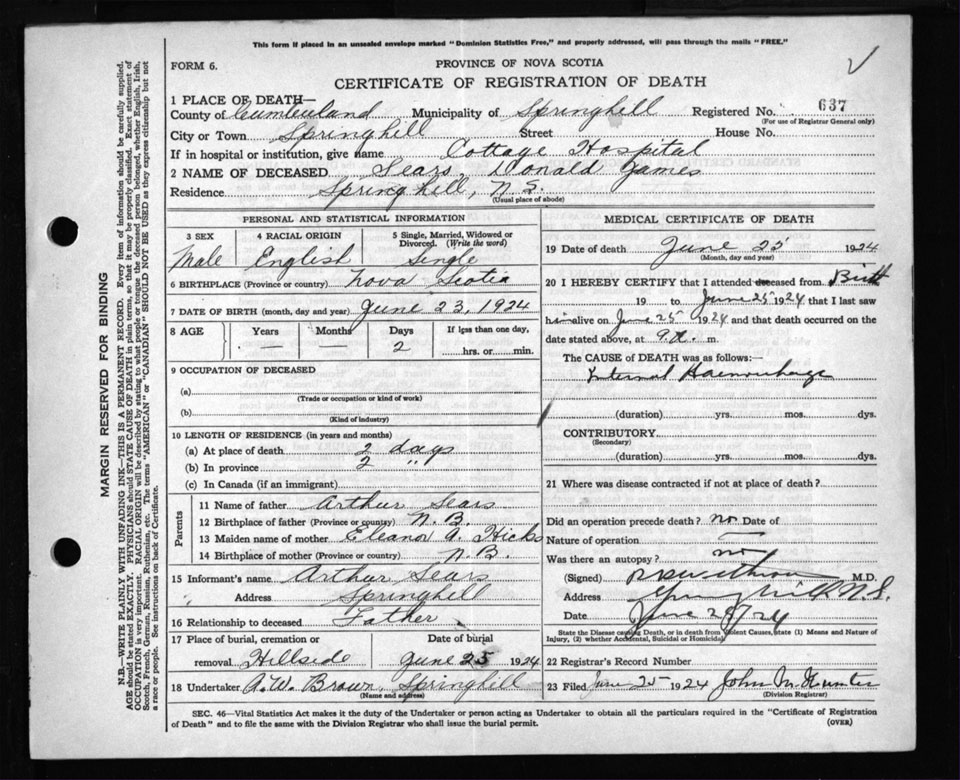 This form if placed in an unsealed envelope marked "Dominion Statistics Free," and properly addressed, will pass through the mails "FREE."
FORM 6.
PROVINCE OF NOVA SCOTIA
CERTIFICATE OF REGISTRATION OF DEATH
1 PLACE OF DEATH—
County of Cumberland Municipality of Springhill Registered No. 637
(For use of Registrar General only)
City or Town Springhill Street House No.
If in hospital or institution, give name Cottage Hospital
2 NAME OF DECEASED Sears, Donald James
Residence Springhill, N.S.
(Usual place of abode)
PERSONAL AND STATISTICAL INFORMATION
3 SEX 4 RACIAL ORIGIN 5 Single, Married, Widowed or Divorced. (Write the word)
Male English Single
6 BIRTHPLACE (Province or country) Nova Scotia
7 DATE OF BIRTH (month, day and year) June 23, 1924
8 AGE Years Months Days If less than one day,
— — 2 hrs. or min.
9 OCCUPATION OF DECEASED
(a)
(Trade or occupation or kind of work)
(b)
(Kind of industry)
10 LENGTH OF RESIDENCE (in years and months)
(a) At place of death 2 days
(b) In province 2 "
(c) In Canada (if an immigrant)
Parents
11 Name of father Arthur Sears
12 Birthplace of father (Province or country) N.B.
13 Maiden name of mother Eleanor A. Hicks
14 Birthplace of mother (Province or country) N.B.
15 Informant's name Arthur Sears
Address Springhill
16 Relationship to deceased Father
17 Place of burial, cremation or Date of burial
removal Hillside June 25 1924
18 Undertaker A.W. Brown, Springhill
(Name and address)
MEDICAL CERTIFICATE OF DEATH
19 Date of death June 25 1924
(Month, day and year)
20 I HEREBY CERTIFY that I attended deceased from Birth
19 to June 25 1924 that I last saw
him alive on June 25 1924 and that death occurred on
date stated above, at 9 a. m.
The CAUSE of DEATH was as follows:
Internal Haemorrhage
(duration) yrs. mos. dys.
CONTRIBUTORY
(Secondary)
(duration) yrs. mos. dys.
21 Where was disease contracted if not at place of death?
Did an operation precede death? no Date of
Nature of operation —
Was there an autopsy? no
(Signed) M.D.
Address Springhill N.S.
Date June 28/24
State the Disease causing Death, or in death from Violent Causes, state (1) Means and Nature of
Injury, (2) whether Accidental, Suicidal or Homicidal
22 Registrar's Record Number
23 Filed June 25 1924 John M. Hunter
(Division Registrar)
SEC. 46—Vital Statistics Act makes it the duty of the Undertaker or person acting as Undertaker to obtain all the particulars required in the "Certificate of Registration
of Death" and to file the same with the Division Registrar who shall issue the burial permit.
(OVER)
MARGIN RESERVED FOR BINDING
N.B.—WRITE PLAINLY WITH UNFADING INK—THIS IS A PERMANENT RECORD. Every item of information should be carefully supplied.
AGE should be stated EXACTLY. PHYSICIANS should STATE CAUSE OF DEATH in plain terms, so that it may be properly classified. Exact statement of
OCCUPATION is very important. RACIAL ORIGIN will be described by stating to what people or tongue the deceased person belonged, whether English, Irish,
Scotch, French, German, Russian, Ruthenian, etc. The terms "AMERICAN" or "CANADIAN" SHOULD NOT BE USED as they express citizenship but not
a race or people. See instructions on back of Certificate.